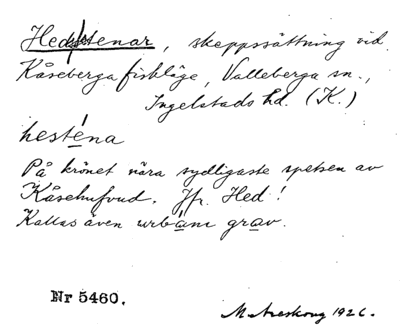 Hedstenar, skeppssättning vid
Kåseberga fiskläge, Valleberga sn.,
Ingelstads hd. (K.)
hesténa
På krönet nära sydligaste spetsen av
Kåsehufvud. Jfr. Hed!
Kallas även urbans grav.
Nr 5460.
M. Areskoug 1926.